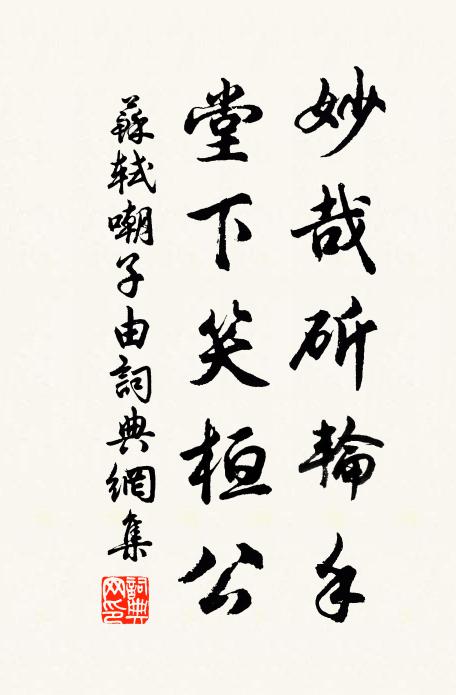 妙哉斫輪手
堂下笑桓公
蘇軾嘲子由詞典網集
詞典网印